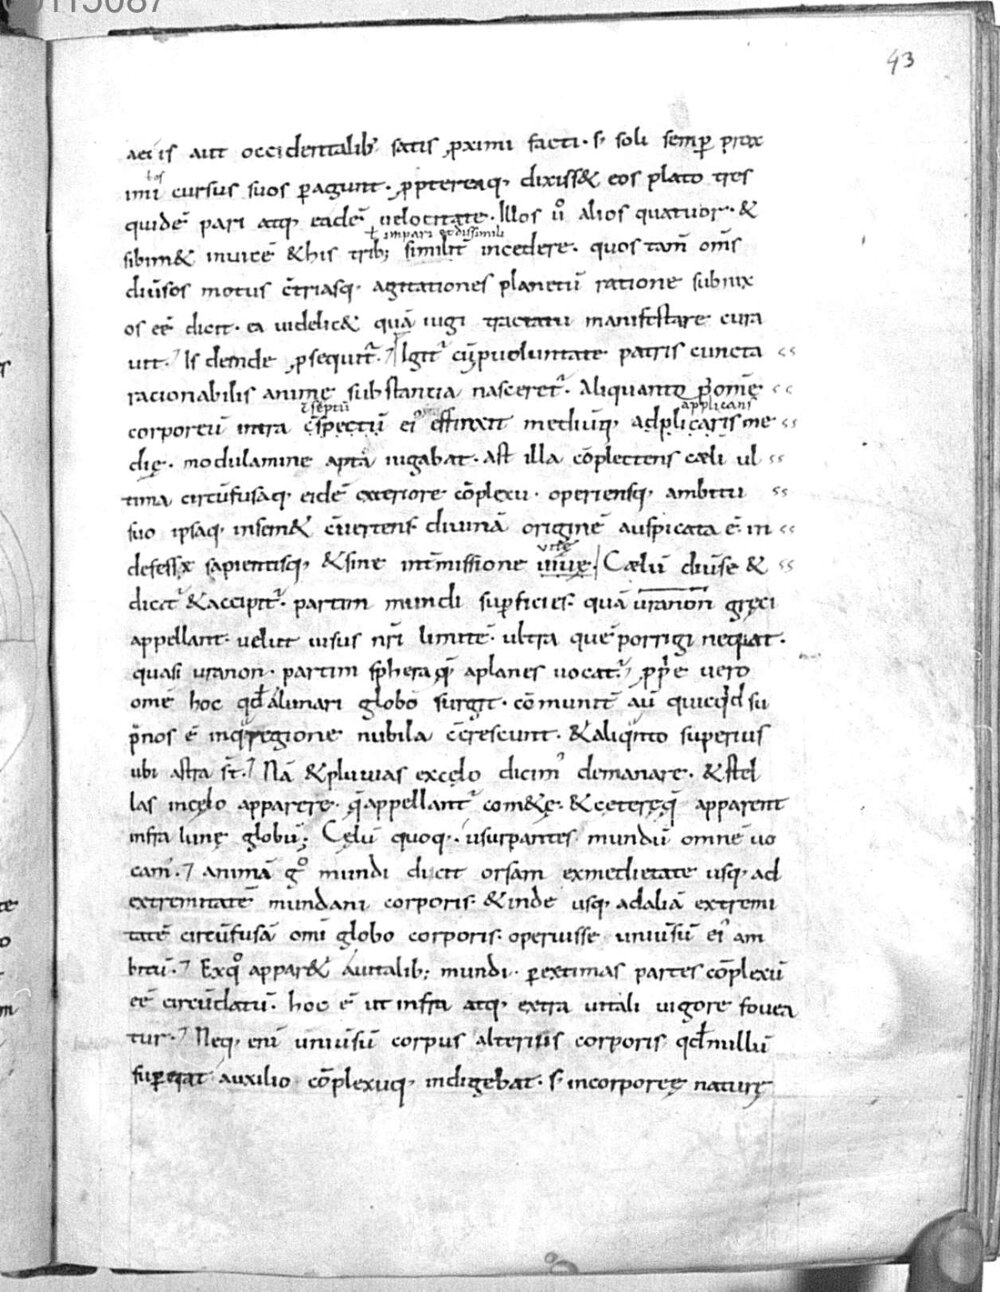 0115087
43
aeris aut occidentalib; satis ꝓximi facti· s; soli semꝑ prox
los
imi cursus suos ꝑagunt· ꝓptereaq, dixiss& eos plato tres
quidē pari atq, eadē velocitate· Illos ů alios quatuor· &
ł impari & dissimili
sibim& inuicē & his trib; similit̄ incedere· quos tam̄ om̄s
diūsos motus c̄triasq, agitationes planetū ratione subnix
os eē dicit· ea uidelic& quā iugi tractatu manifestare cura
uit· Is deinde ꝓsequit᷑· Igit᷑ cū ꝓ uoluntate patris cuncta
racionabilis animę substantia nasceret᷑· Aliquanto p̄ omē
c̄septū applicans
corporeū intra c̄spectū ei᾽ effinxit mediūq, adplicaris me
dię· modulamine aptā iugabat· Ast illa cōplectens cæli ul
tima circūfusaq, eidē exteriore cōplexu· operiensq, ambitu
suo ipsaq, insem& c̄uertens diuinā originē auspicata ē· in
vitę
defessę sapientisq, & sine int̄missione uiuę· Cælū diūse &
dicit᷑ & accipit᷑· partim mundi suꝑficies· quā uranon gręci
appellant· velut uisus nr̄i limitē· ultra quē porrigi nequeat·
quasi uranon· partim sphera q̄ aplanes uocat᷑· ꝓprie vero
omē hoc qd̄ a lunari globo surgit· cōmunit̄ aū quicqd su
ꝑ nos ē inq regione nubila c̄crescunt· & aliqnto superius
ubi astra st̄· Nā & pluuias ex cęlo dicim᾽ demanare· & stel
las in cęlo apparere· q̄ appellant᷑ com&ę· & ceteręq̄ apparent
infra lunę globū; Cęlū quoq, usurpantes mundū omnē uo
cam᾽· animā gͦ mundi dicit orsam ex medietate usq, ad
extremitatē mundani corporis· & inde usq, ad aliā extremi
tatē circūfusā omī globo corporis· operuisse uniūsū ei᾽ am
bitū· Ex qͦ appar& a uitalib; mundi· ꝑ extimas partes cōplexū
eē circūdatū· hoc ē ut infra atq, extra uitali uigore fouea
tur· Neq, enī uniūsū corpus alterius corporis qd̄ nullū
suꝑerat auxilio cōplexuq, indigebat· s; incorporeę naturę